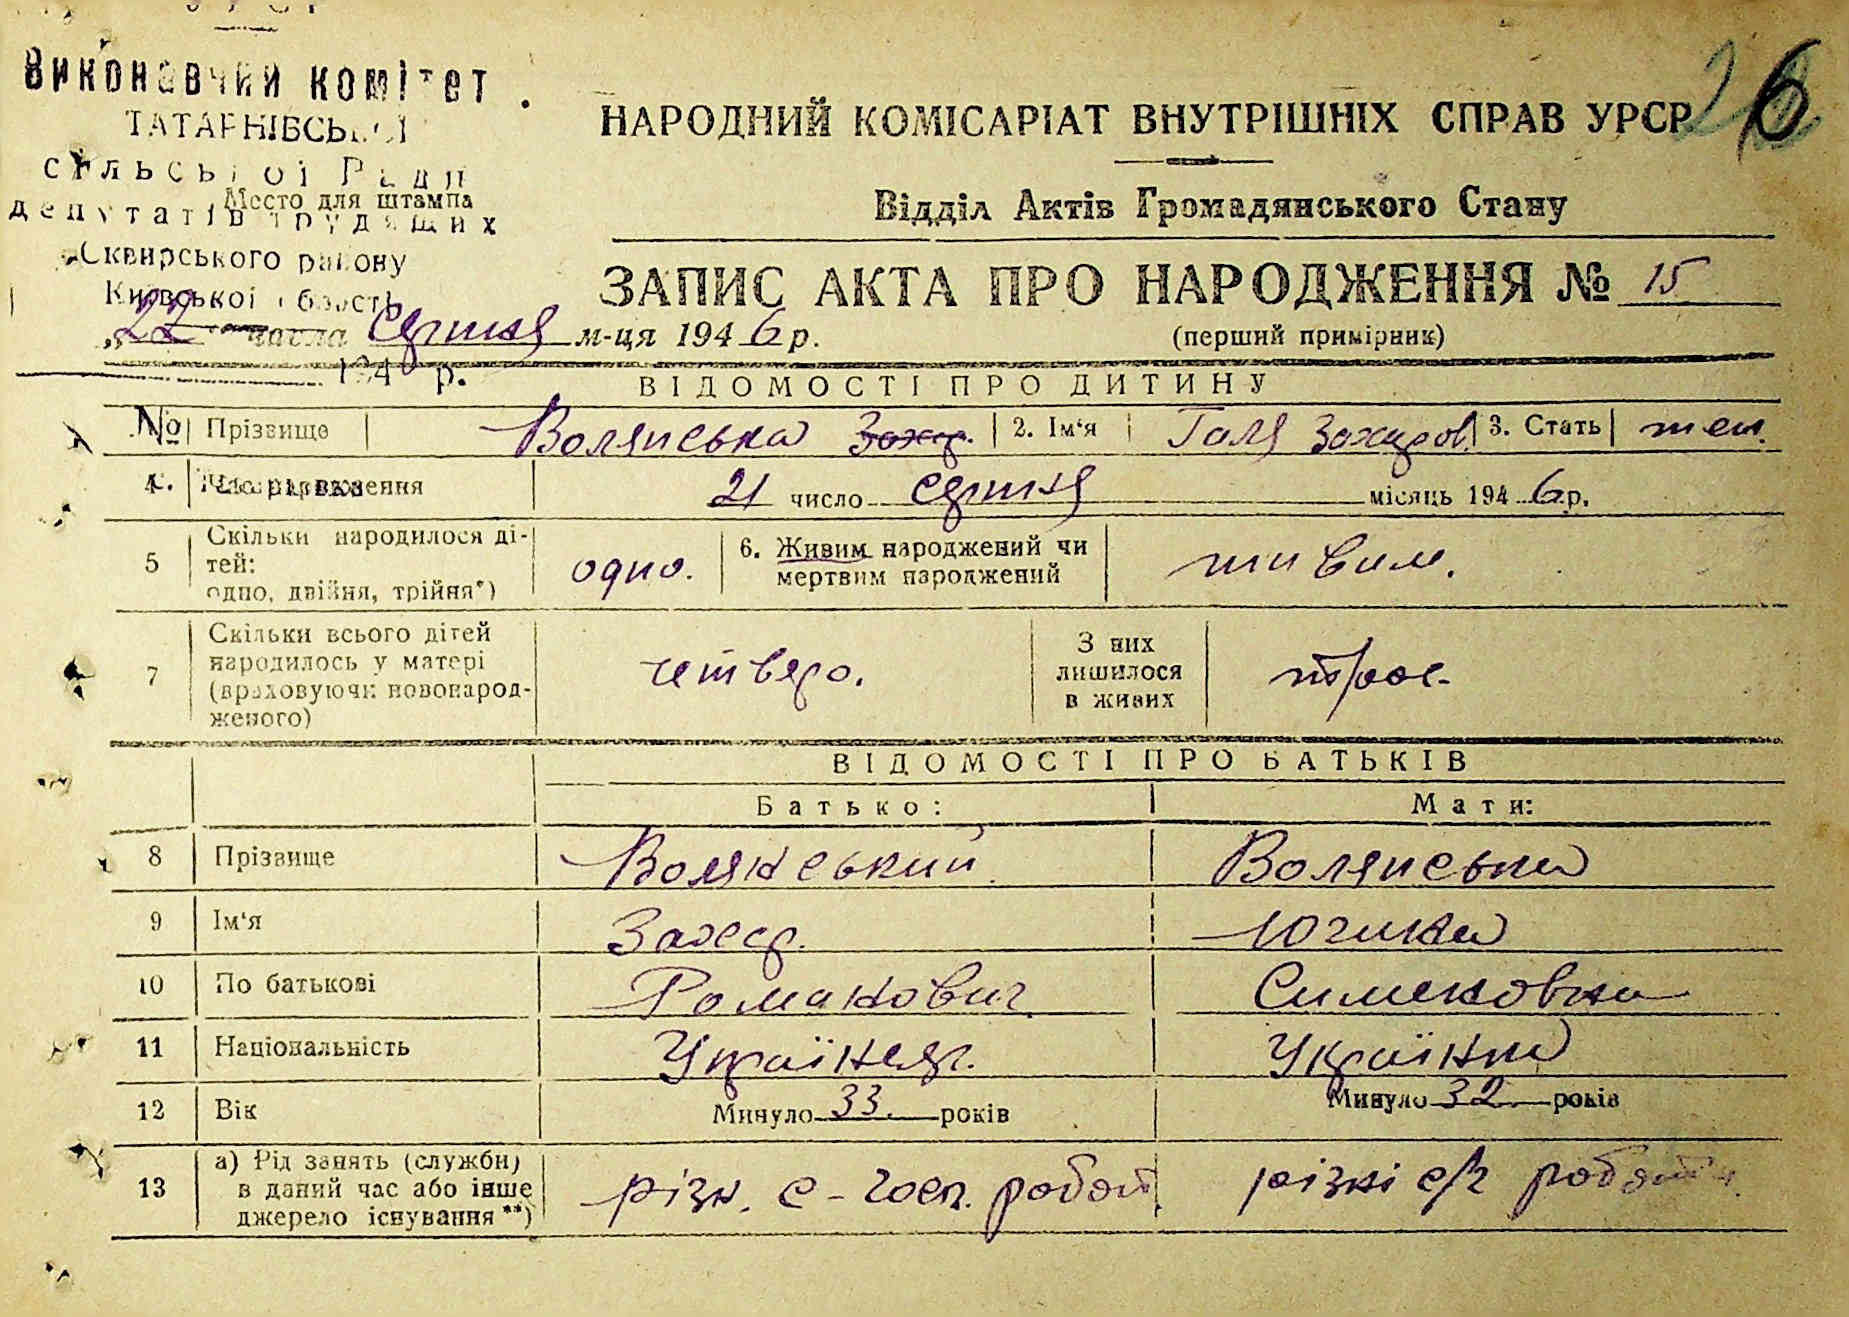 Виконавчий комітет
ТАТАРНІВСЬКОЇ
сільської Ради
Место для штампа
депутатів трудящих
Сквирського району
Київської області
194 р.
№
26
НАРОДНИЙ КОМІСАРІАТ ВНУТРІШНІХ СПРАВ УРСР
Відділ Актів Громадянського Стану
ЗАПИС АКТА ПРО НАРОДЖЕННЯ № 15
(перший примірник)
„22“ числа Серпня м-ця 1946 р.
ВІДОМОСТІ ПРО ДИТИНУ
Прізвище Волянська Захар. 2. Ім‘я Галя Захаров. 3. Стать жен.
4. Час народження 21 число серпня місяць 1946 р.
5 Скільки народилося ді-
тей:
одно, двійня, трійня*) одно.
6. Живим народжений чи
мертвим народжений живим.
7 Скільки всього дітей
народилось у матері
(враховуючи новонарод-
женого) четверо.
З них
лишилося
в живих троє.
ВІДОМОСТІ ПРО БАТЬКІВ
Батько: Мати:
8 Прізвище Волянський Волянська
9 Ім‘я Захар.
10 По батькові Романович Сименовна
11 Національність Українец. Українка
12 Вік Минуло 33. років Минуло 32 років
13 а) Рід занять (служби)
в даний час або інше
джерело існування **) різн. с-госп. робот різні с/г роботи.